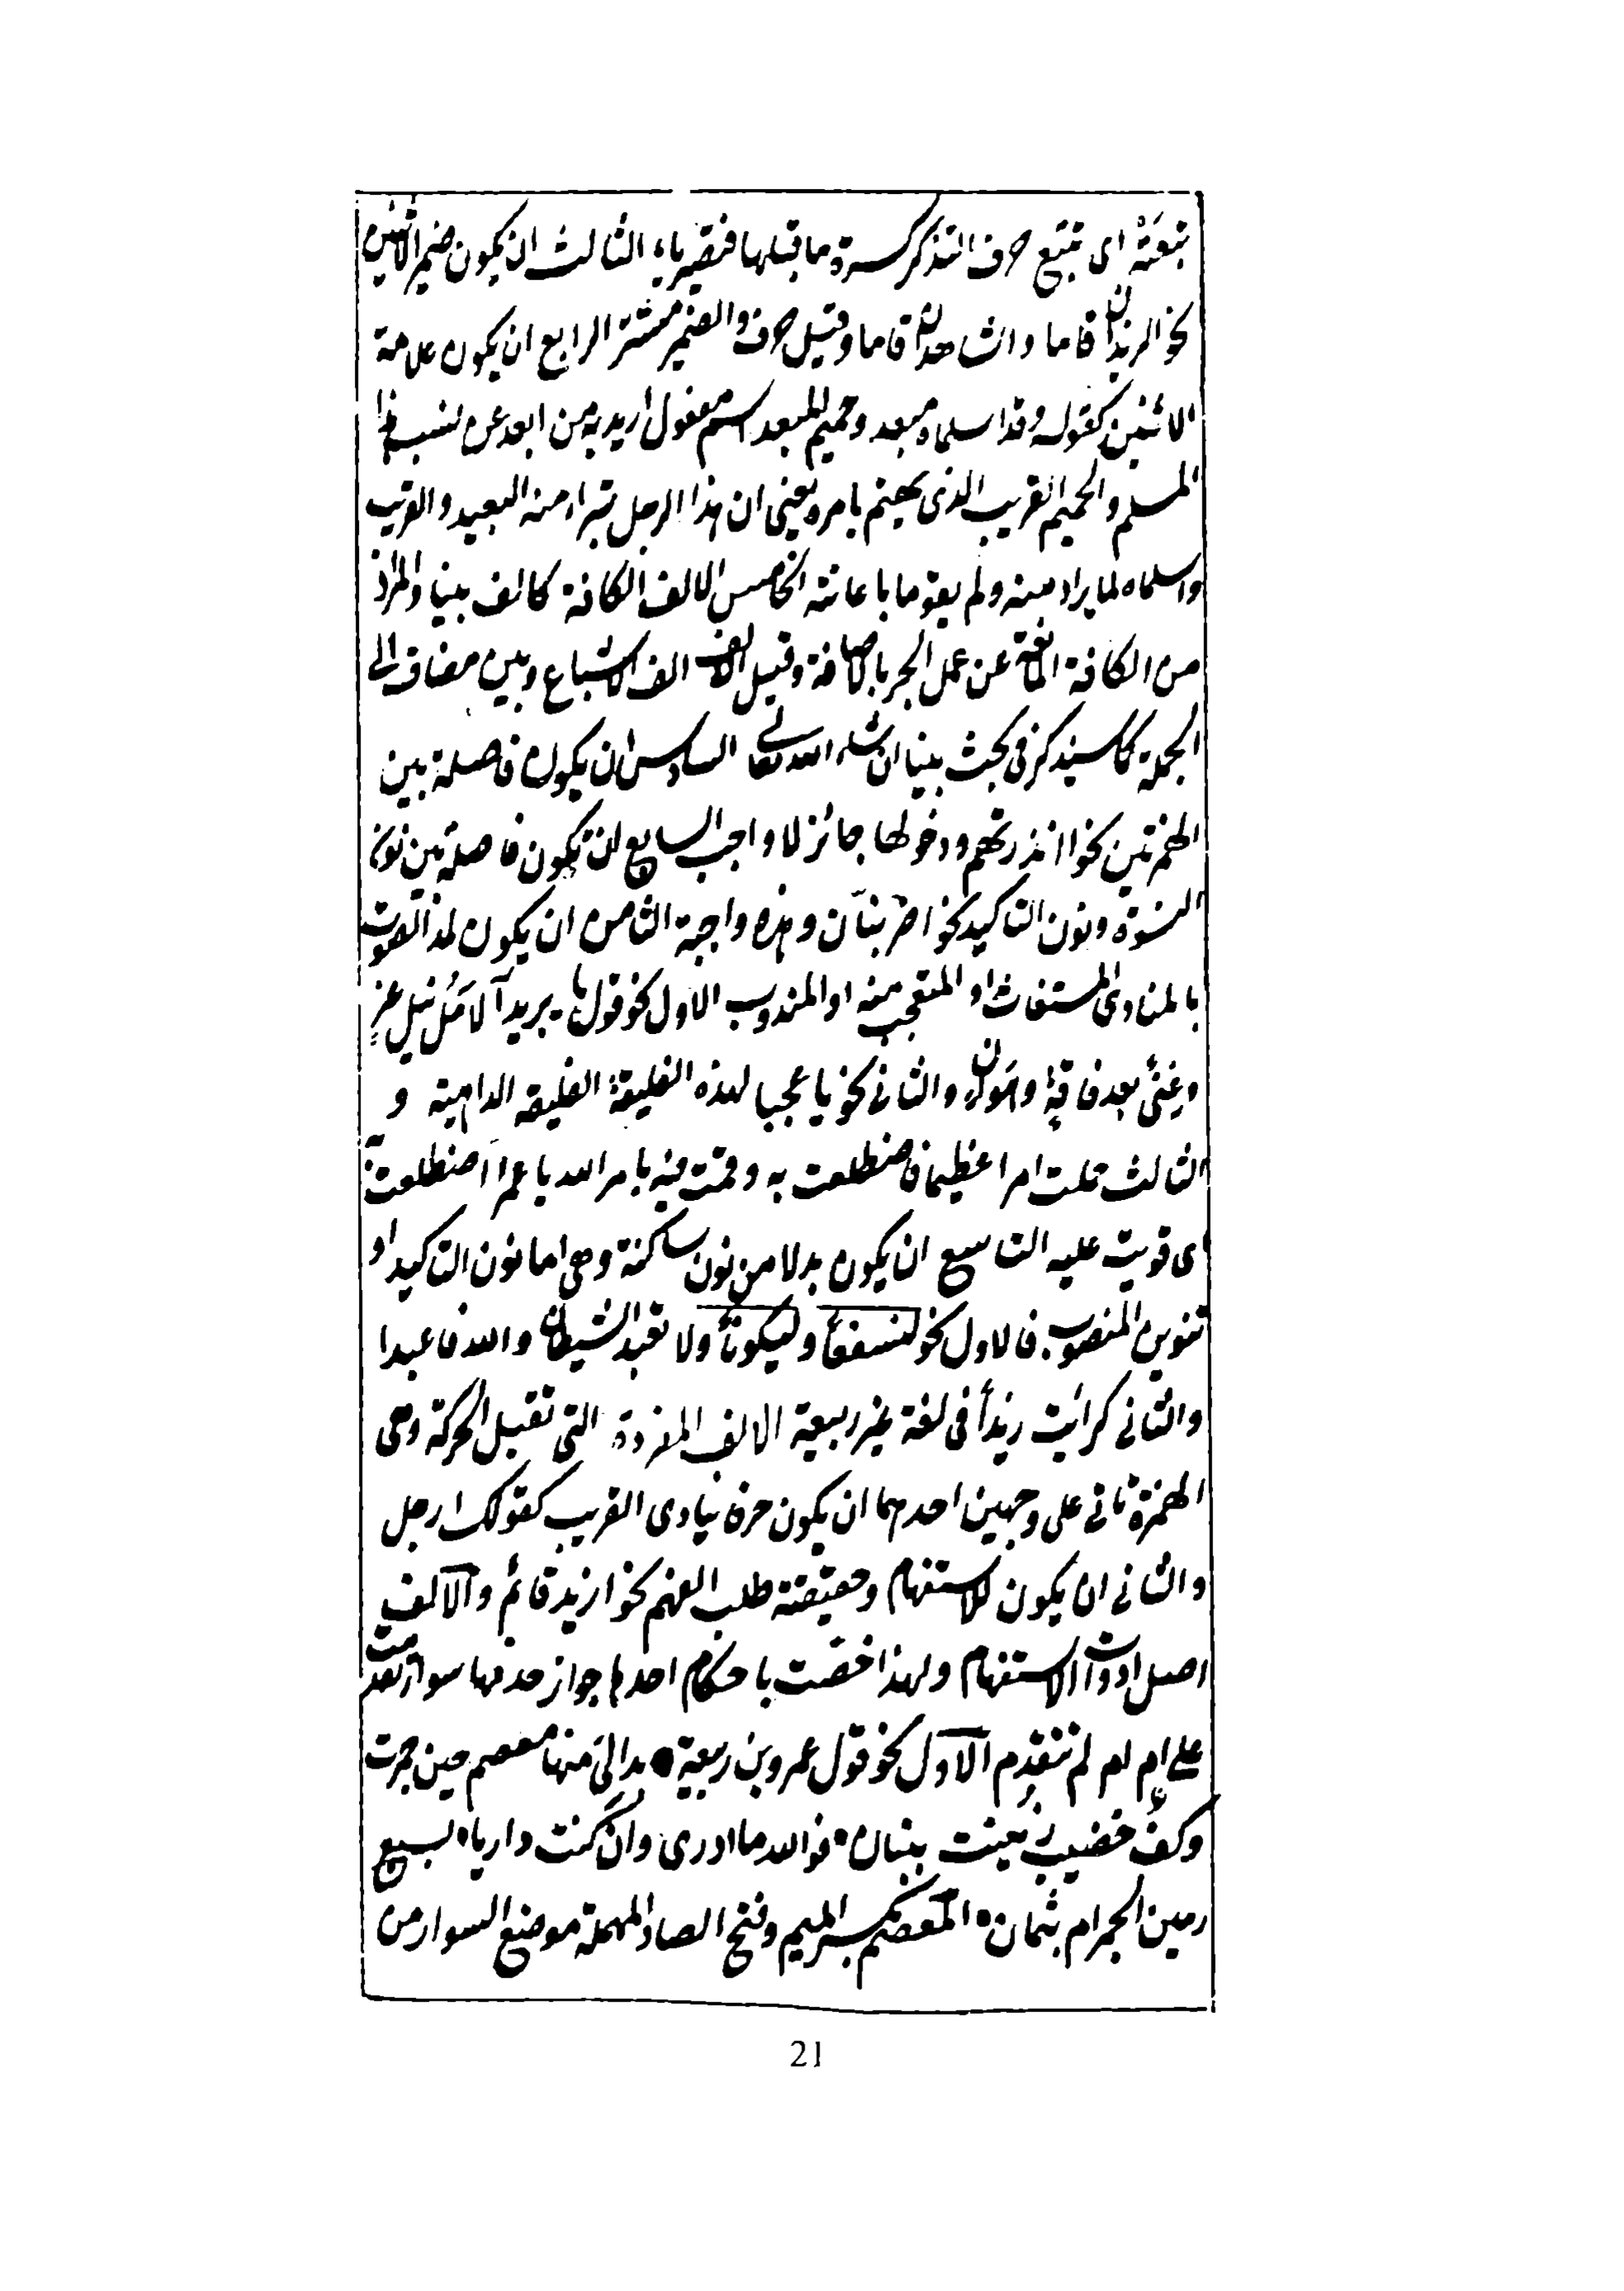 تبعته اى تتبع حرف التذكر كسرة ما قبلها فتصير ياء الثالث ان يكون ضمير الاثنين
نحو الزيدان قاما والشاهدان قاما وقيل حرف والضمير مستتر الرابع ان يكون علامة
الاثنين كقوله وقد اسلماه مبعد وحميم المبعد اسم مفعول اريد به من ابعد عن نسب هذا
المسلم والحميم القريب الذى يهتم بامره يعنى ان هذا الرجل تبراء منه البعيد والقريب
واسلماه لما يراد منه ولم يقوما باعانته الخامس الالف الكافة كالف بينا والمراد
من الكافة المانعة عن عمل الجر بالاضافة وقيل الالف الف الاشباع وبين مضاف الى
الجملة كما سيذكر فى بحث بينا ان شاء الله تعالى السادس ان يكون فاصلة بين
الهمزتين نحو اانذرتهم ودخولها جائز لا واجب السابع ان تكون فاصلة بين نون
النسوة ونون التاكيد نحو اضربنان وهذه واجبة الثامن ان يكون لمد الصوت
بالمنادى المستغاث او المتعجب منه او المندوب الاول نحو قوله يا يزيدا لآمل نيل عز
وغنى بعد فاقة وهوان والثانى نحو يا عجبا لهذه الفليقة الفليقه الداهية و
الثالث حملت امرا عظيما فاضطلعت به وقمت فيه بامر الله يا عمرا اضطلعت
اى قويت عليه التاسع ان يكون بدلا من نون ساكنة وهى اما نون التاكيد او
تنوين المنصوب فالاول نحو لنسفعاً وليكوناً ولا تعبد الشيطان والله فاعبدا
والثانى كرأيت زيداً فى لغة غير ربيعة الالف المفردة التى تقبل الحركة وهى
الهمزة تاتى على وجهين احدهما ان يكون حرفا ينادى القريب كقولك ا رجل
والثانى ان يكون للاستفهام وحقيقته طلب الفهم نحو ا زيد قائم والالف
اصل ادوات الاستفهام ولهذا خصت باحكام احدها جواز حذفها سواء تقدمت
على ام ام لم تتقدم الاول نحو قول عمرو بن ربيعة بدا لى منها معصم حين جمرت
وكف خضيب زينت ببنان فوالله ما ادرى وان كنت داريا بسبع
رمين الجمر ام بثمان المعصم بكسر الميم وفتح الصاد المهملة موضع السوار من
21